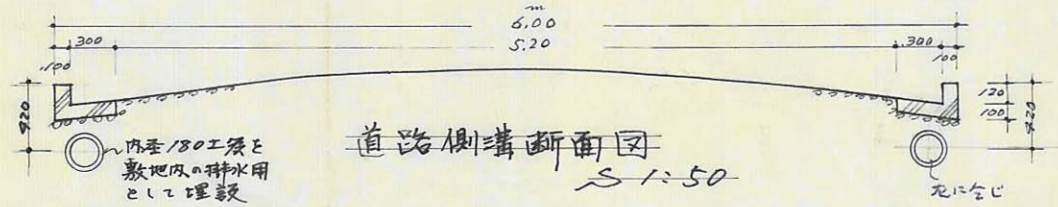 m
6.00
5.20
300
100
300
100
420
120
100
420
内径180土管を
敷地内の排水用
として埋設
道路側溝断面図
S 1:50
左に仝じ